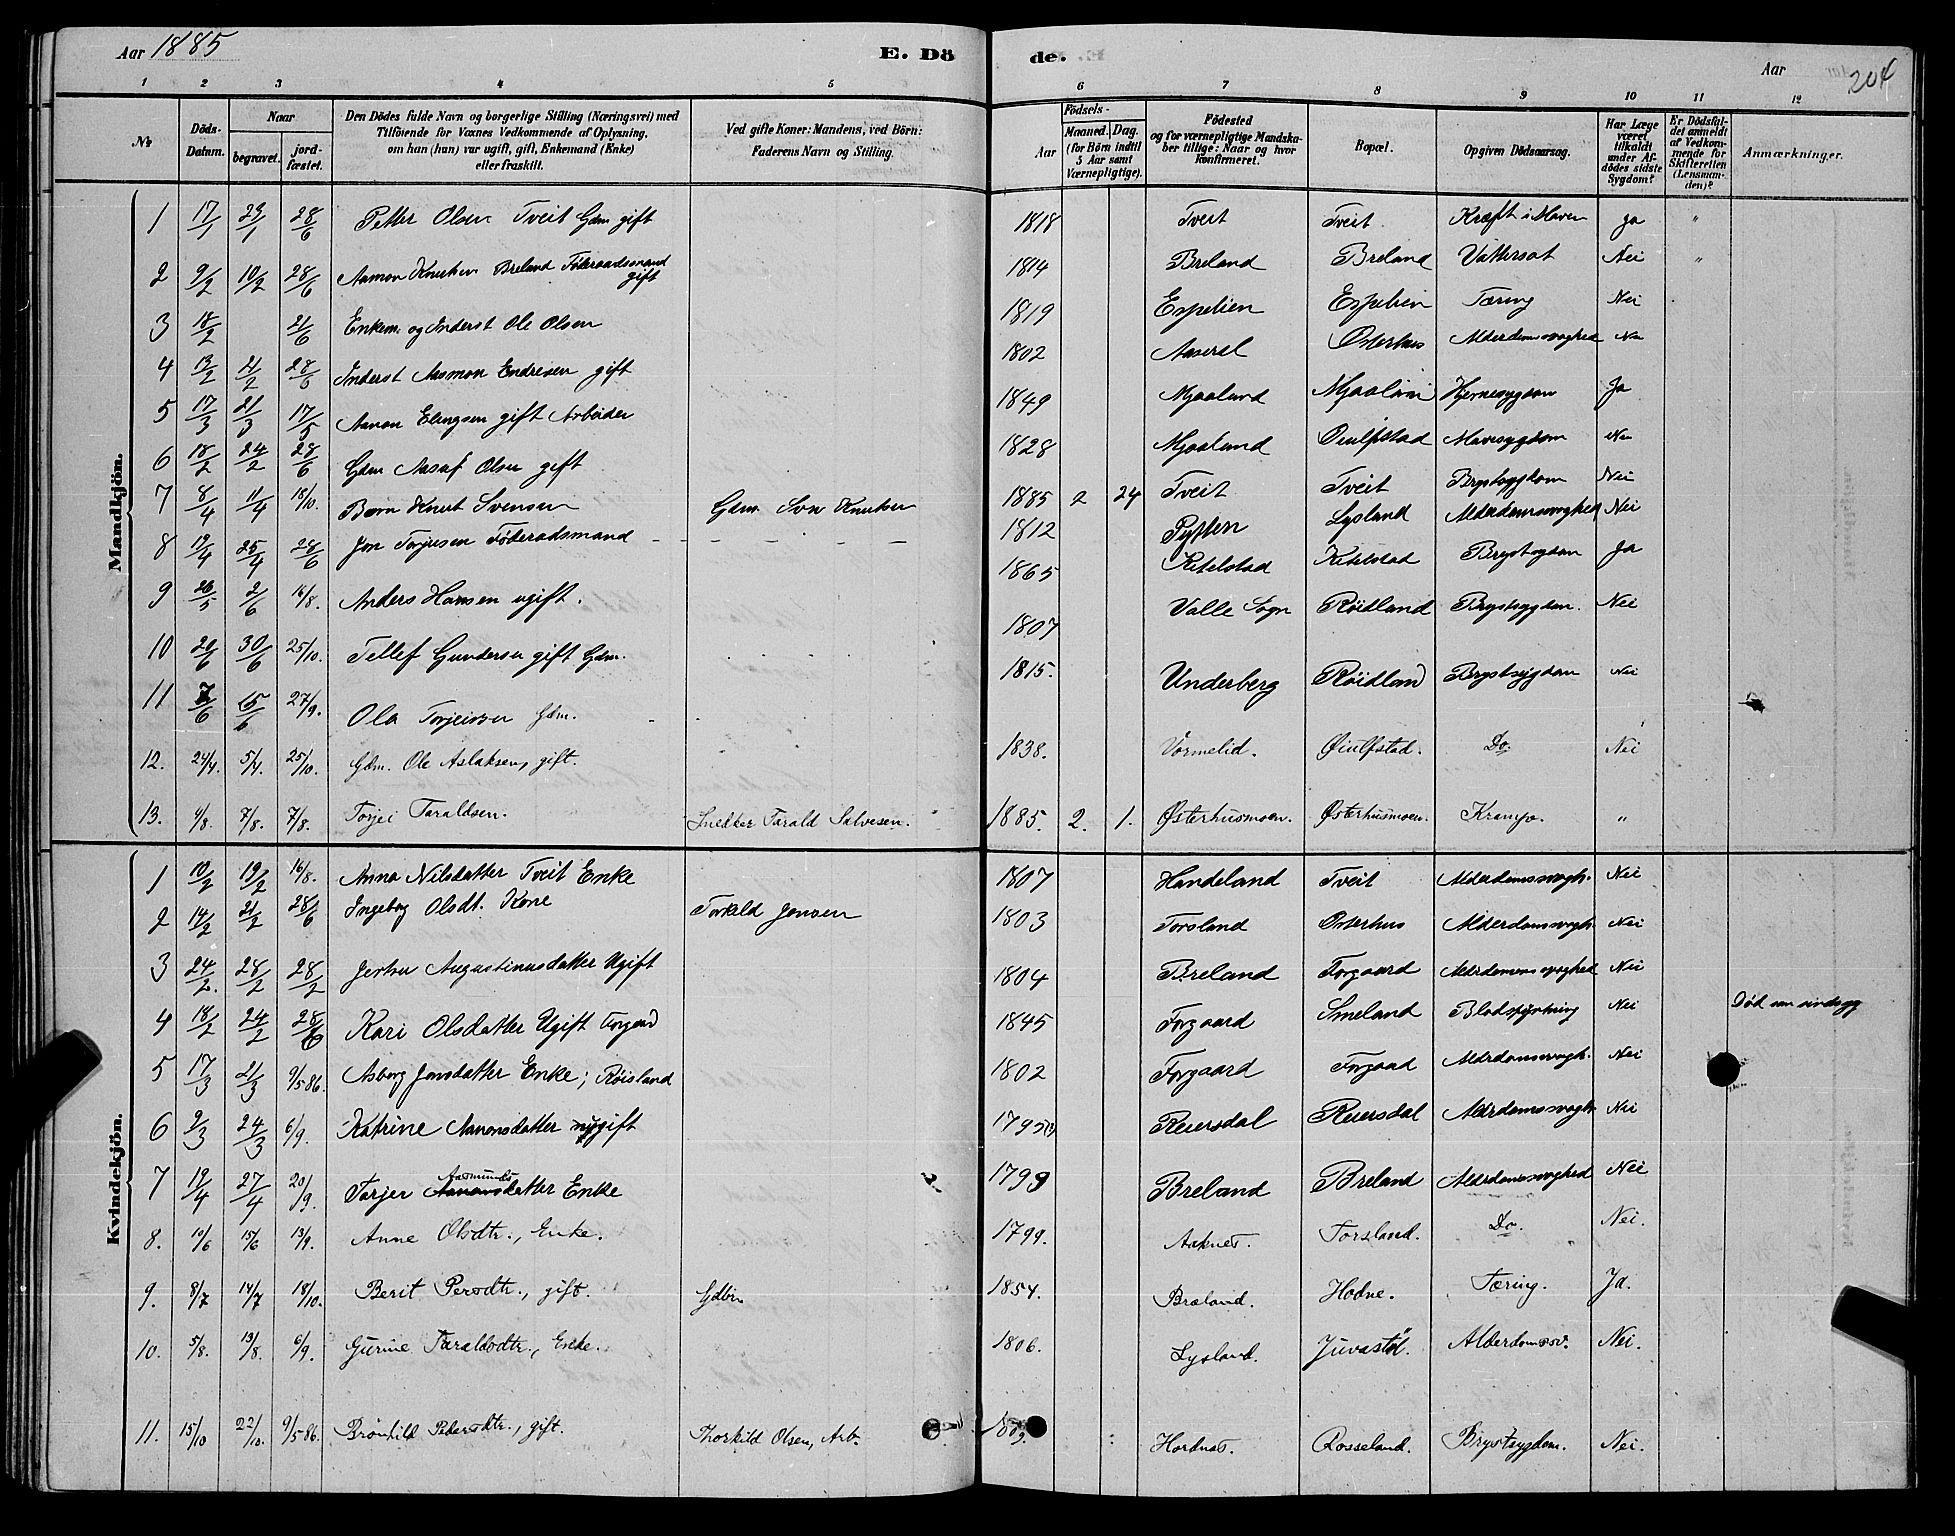 Aar 1885
E. Dö
de.
Aar
204
1 2 3 4 5 6 7 8 9 10 11 12
No
Döds-Datum.
Naar
begravet.
jord-fæstet.
Den Dödes fulde Navn og borgerlige Stilling (Næringsvei) med
Tilföiende for Voxnes Vedkommende af Oplysning,
om han (hun) var ugift, gift, Enkemand (Enke)
eller fraskilt.
Ved gifte Koner: Mandens, ved Börn:
Faderens Navn og Stilling.
Födsels-
Aar
Maaned. Dag.
(for Börn indtil
5 Aar samt
Værnepligtige).
Födested
og for værnepligtige Mandska-
ber tillige: Naar og hvor
Konfirmeret.
Bopæl.
Opgiven Dödsaarsag.
Har Læge
været
tilkaldt
under Af-
dödes sidste
Sygdom?
Er Dödsfal-
det anmeldt
af Vedkom-
mende for
Skifteretten
(Lensman-
den)?
Anmærkninger.
Mandkjön.
1 17/1 23/1 28/6 Petter Olsen Tveit Gdm gift 1818 Tveit Tveit Kræft i Maven ja "
2 9/2 10/2 28/6 Aamon Knutsen Breland Föderaadsmand gift 1814 Breland Breland Vattersot Nei "
3 18/2 21/6 Enkem. og Inderst Ole Olsen 1819 Espelien Espelien Tæring Nei
4 13/2 21/2 28/6 Inderst Aasmon Endresen gift 1802 Aaseral Osterhus Alderdomssvaghed Nei
5 17/3 21/3 17/5 Aanon Elingsen gift Arbeider 1849 Mjaaland Mjaaland Hjernesygdom Ja
6 18/2 24/2 28/6 Gdm Aasuf Olsen gift 1828 Mjaaland Öiulfstad Mavesygdom Nei
7 8/4 11/4 18/10. Barn Knut Svensen Gdm. Sven Knutsen 1885 2 24 Tveit Tveit Brystsygdom Nei
8 19/4 25/4 28/6 Jon Torjusen Föderaadsmand 1812 Pytten Lysland Alderdomssvaghed Nei
9 26/5 2/6 16/8. Anders Hansen ugift. 1865 Ketelstad Ketelstad Brystsygdom Ja
10 20/6 30/6 25/10. Tellef Gundersen gift Gdm. 1807 Valle Sogn Röidland Brystsygdom. Nei
11 7/6 15/6 27/9. Ola Torjeissen Gdm. 1815. Underberg Röidland Brystsygdom Nei
12. 24/4. 5/4. 25/10. Gdm. Ole Aslaksen, gift. 1838. Vormelid. Øiulfstad. Do. Nei
13. 4/8. 7/8. 7/8. Torjei Taraldsen. Snedker Tarald Salvesen. 1885. 2. 1. Østerhusmoen. Østerhusmoen. Krampe. "
Kvindekjön.
1 10/2 19/2 16/8. Anna Nilsdatter Tveit Enke 1807 Handeland Tveit Alderdomssvagh. Nei
2 14/2 21/2 28/6 Ingeborg Olsdt. Kone Torkild Jensen 1803 Torsland Osterhus Alderdomssvagh. Nei
3 24/2. 28/2 28/2 Augustinusdatter Ugift 1804 Breland Forgaard Alderdomssvaghed Nei
4 18/2 24/2 28/6 Kari Olsdatter Ugift Forgaard 1845 Forgaard Smeland Blodstyrtning Nei Död som sindssyg
5 17/3 21/3 9/5 86. Asborg Jonsdatter Enke; Röisland 1802 Forgaard Forgaard Alderdomssvagh. Nei
6 2/3 24/3 6/9. Katrine Aanonsdatter ugift 1795 Reiersdal Reiersdal Alderdomssvagh Nei
7 19/4 27/4 20/9. Torjer Aasmunds Aanonsdatter Enke 1793 Breland Breland Alderdomssvaghed Nei
8. 10/6 15/6 13/9. Anne Olsdtr., Enke. 1799. Aaknes. Torsland. Do. Nei.
9. 8/7 14/7 18/10. Berit Persdtr., gift. 1854. Bræland. Hodne. Tæring. Ja.
10. 5/8. 13/8. 6/9. Gurine Taraldsdtr., Enke. 1806. Lysland. Juvastöl. Alderdomssv. Nei.
11. 15/10 22/10. 9/5 86. Brönhild Pedersdtr., gift. Thorkild Olsen, Arb. Hordnes. Rosseland. Brystsygdom. Nei.